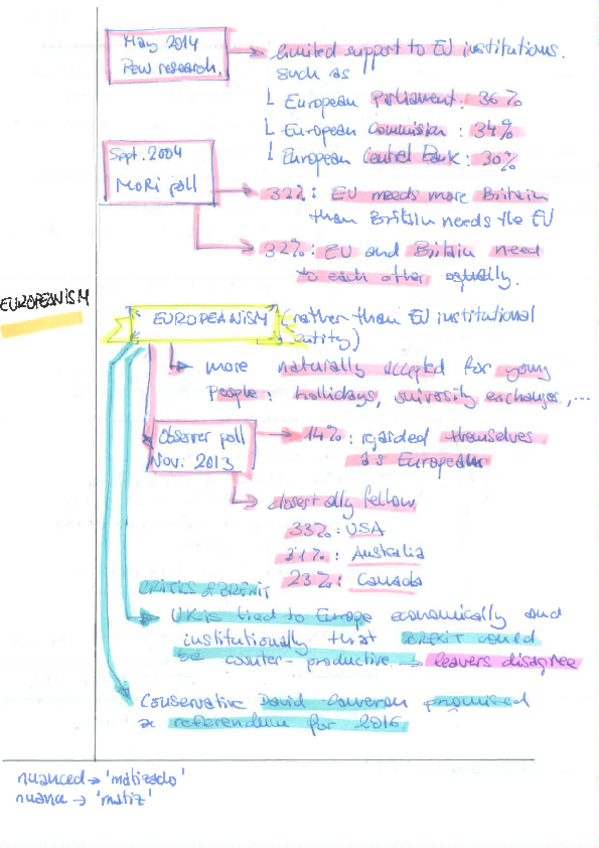 May 2014
Pew research.
limited support to EU institutions.
such as
European Parliament: 36%
European Commission: 34%
European Central Bank: 30%
Sept. 2004
MORI poll
32%: EU needs more Britain
than Britain needs the EU
32%: EU and Britain need
to each other equally.
EUROPEANISM
EUROPEANISM (rather than EU institutional
entity)
more naturally accepted for young
People: hollidays, university exchanges,...
Observer poll
Nov. 2013
14%: regarded themselves
as European
closest ally fellow
33%: USA
31%: Australia
23%: Canada
CRITICS of BREXIT
UK is tied to Europe economically and
institutionally that BREXIT could
be counter-productive → leavers disagree
Conservative David Cameron promised
a referendum for 2016
nuanced → 'matizado'
nuance → 'matiz'